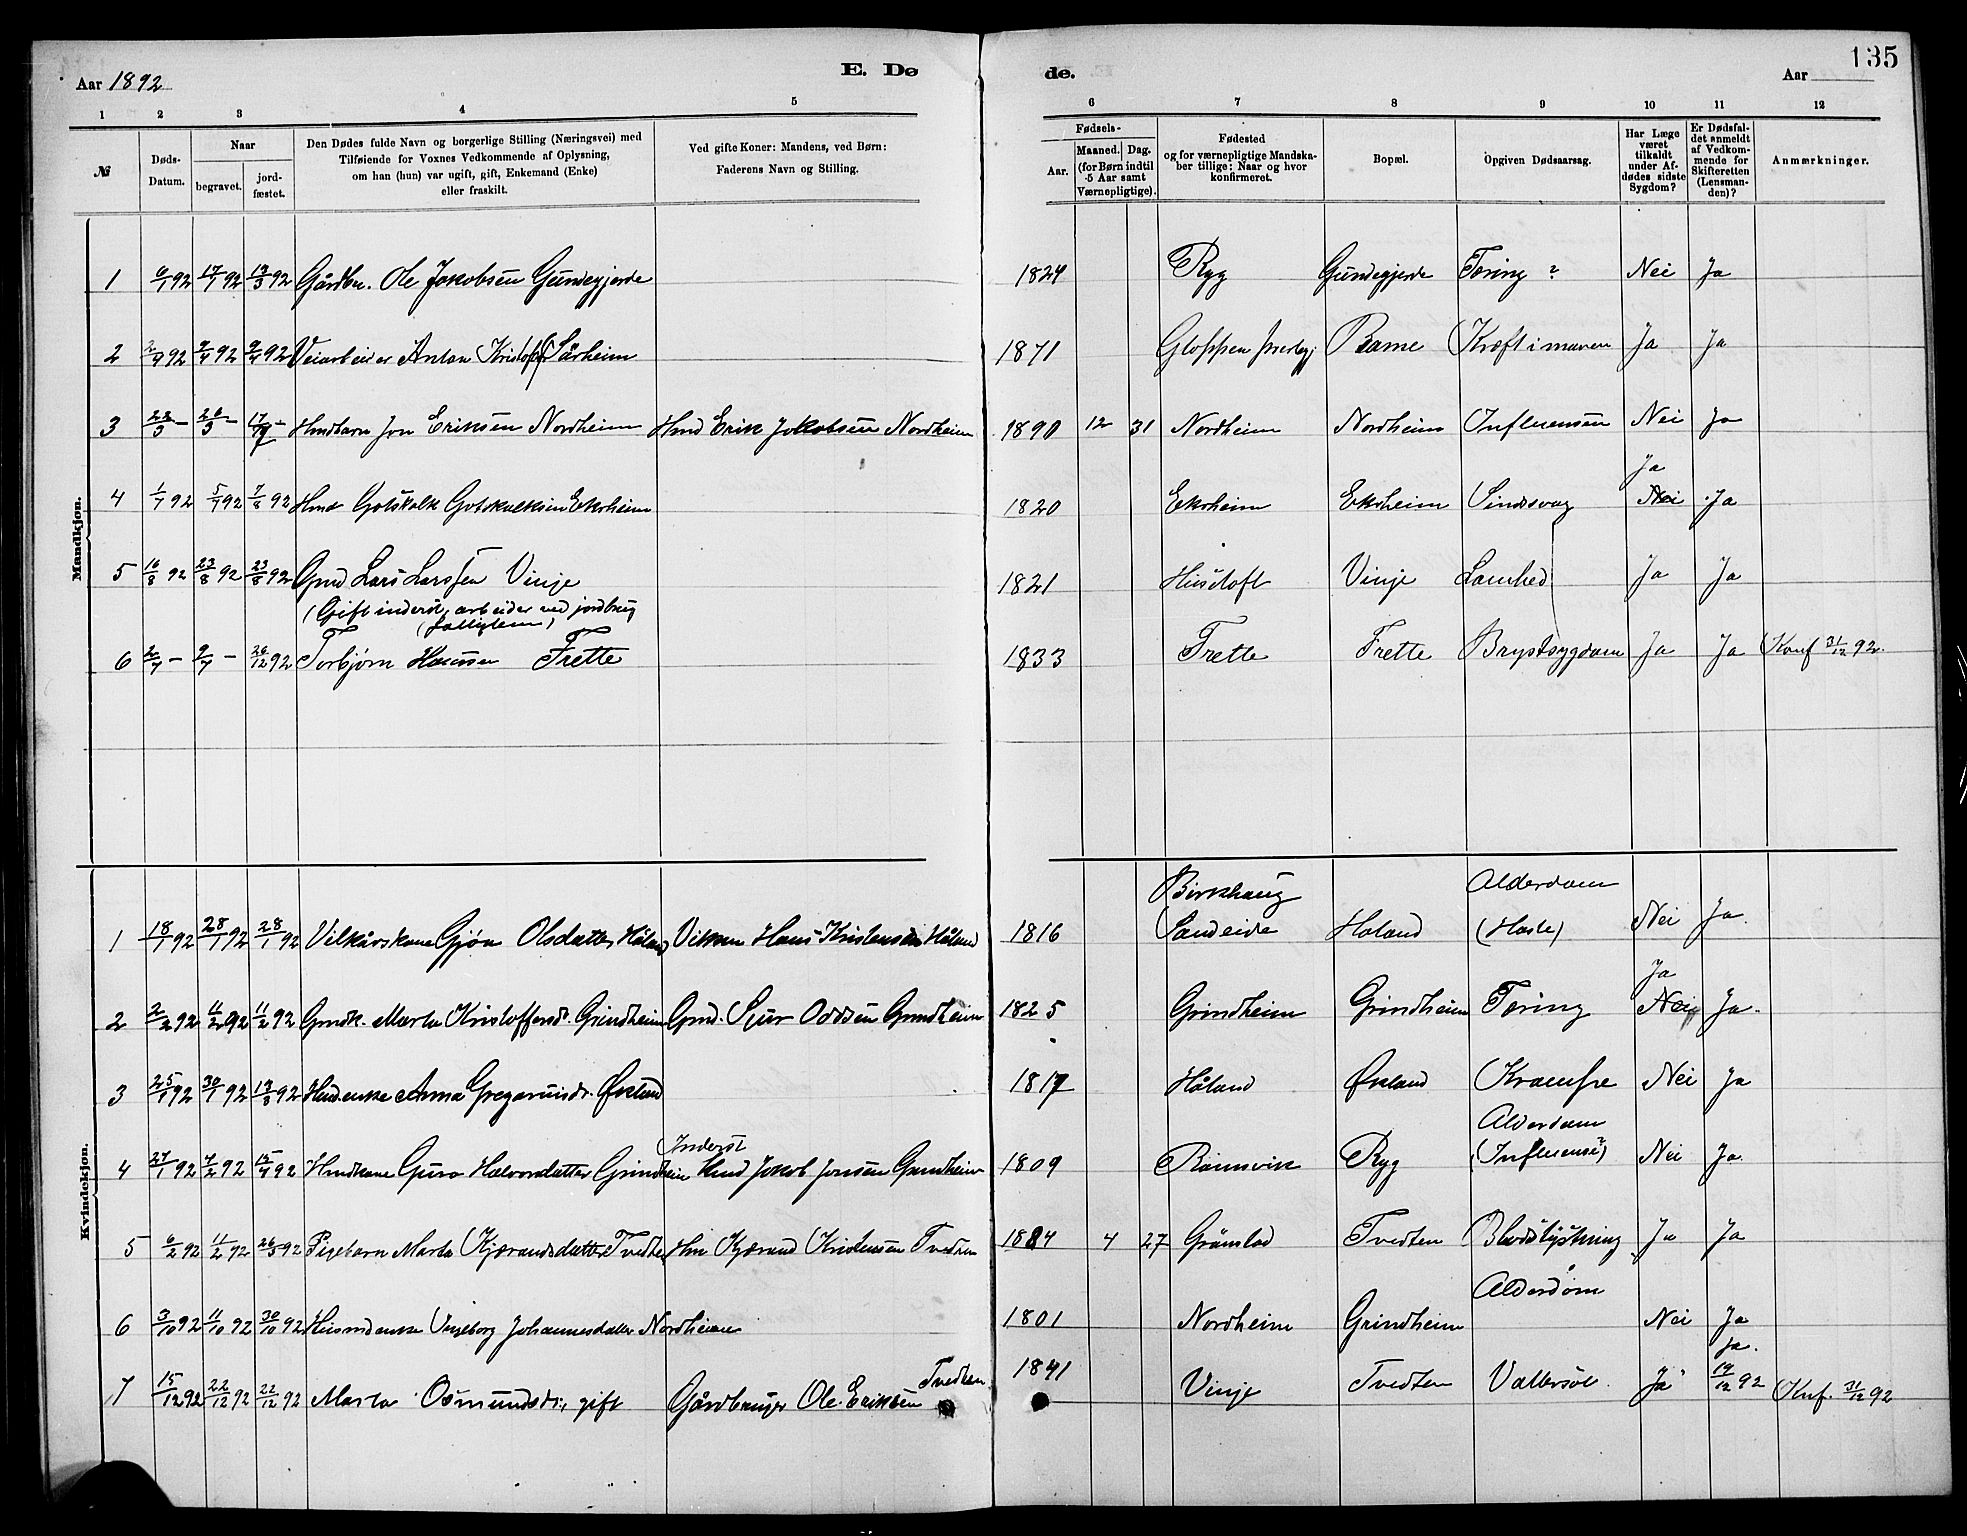 135
Aar 1892
E. Dø
de.
Aar
1 2 3 4 5 6 7 8 9 10 11 12
№
Døds-Datum.
Naar
begravet.
jord-fæstet.
Den Dødes fulde Navn og borgerlige Stilling (Næringsvei) med
Tilføiende for Voxnes Vedkommende af Oplysning,
om han (hun) var ugift, gift, Enkemand (Enke)
eller fraskilt.
Ved gifte Koner: Mandens, ved Børn:
Faderens Navn og Stilling.
Fødsels-
Aar.
Maaned. Dag.
(for Børn indtil
5 Aar samt
Værnepligtige).
Fødested
og for værnepligtige Mandska-
ber tillige: Naar og hvor
konfirmeret.
Bopæl.
Opgiven Dødsaarsag.
Har Læge
været
tilkaldt
under Af-
dødes sidste
Sygdom?
Er Dødsfal-
det anmeldt
af Vedkom-
mende for
Skifteretten
(Lensman-
den)?
Anmærkninger.
Mandkjøn.
1 6/1 92 17/1 92 13/3 92 Gårdbr. Ole Jakobsen Gundegjerde 1824 Ryg Gundegjerde Tæring ? Nei Ja
2 2/4 92 9/4 92 9/4 92 Veiarbeider Anton Sårheim 1871 Gloppen Bame Kræft i maven Ja Ja
3 22/5 – 26/5 – 17/7 – Hmdbarn Jon Eriksen Nordheim Hmd Erik Jakobsen Nordheim 1890 12 31 Nordheim Nordheim Influensen Nei Ja
Ja
4 1/7 92 5/7 92 7/8 92 Hmd Gotskalk Gotskalksen Ekrheim 1820 Ekrheim Ekrheim Sindssvag Nei Ja
5 16/8 92 23/8 92 23/8 92 Gmd Lars Larssen Vinje 1821 Husetoft Vinje Lamhed Ja Ja
(Gift inderst, arbeider ved jordbrug
6 2/7 – 9/7 – 26/12 92 Torbjørn Hansen Frette 1833 Frette Frette Brystsygdom Ja Ja Konf 31/12 92.
Kvindekjøn.
Birkhaug Alderdom
1 18/1 92 28/1 92 28/1 92 Vilkårskone Gjøa Olsdatter Håland Vilkm Hans Kristensen Håland 1816 Sandeide Håland (Hoste) Nei Ja.
Ja
2 2/2 92 11/2 92 11/2 92 Gmdk. Marta Kristoffersdr. Grindheim Gmd. Sjur Oddsen Grindheim 1825 Grindheim Grindheim Tæring Nei Ja.
3 25/1 92 30/1 92 13/3 92 Hmd.enke Anna Gregoriusdr. Økland 1817 Håland Økland Krampe Nei Ja
Inderst Alderdom
4 27/1 92 7/2 92 15/4 92 Hmdkone Guro Halvorsdatter Grindheim Hmd Jakob Jonsen Grindheim 1809 Rønnevik Ryg (Influensa?) Nei Ja.
5 6/2 92 11/2 92 26/5 92 Pigebarn Marta Kjærandsdatter Tvedten Hm Kjærand Kristensen Tvedten 1884 4 27 Grønstad Tvedten Blodstyrtning Ja Ja
Alderdom
6 3/10 92 11/10 92 30/10 92 Husmdsenke Ingeborg Johannesdatter Nordheim 1801 Nordheim Grindheim Nei Ja
Ja.
7 15/12 92 22/12 92 22/12 92 Marta Osmundsdr., gift Gårdbruger Ole Eriksen Tvedten 1841 Vinje Tvedten Vattersot Ja 19/12 92 Knf. 31/12 92